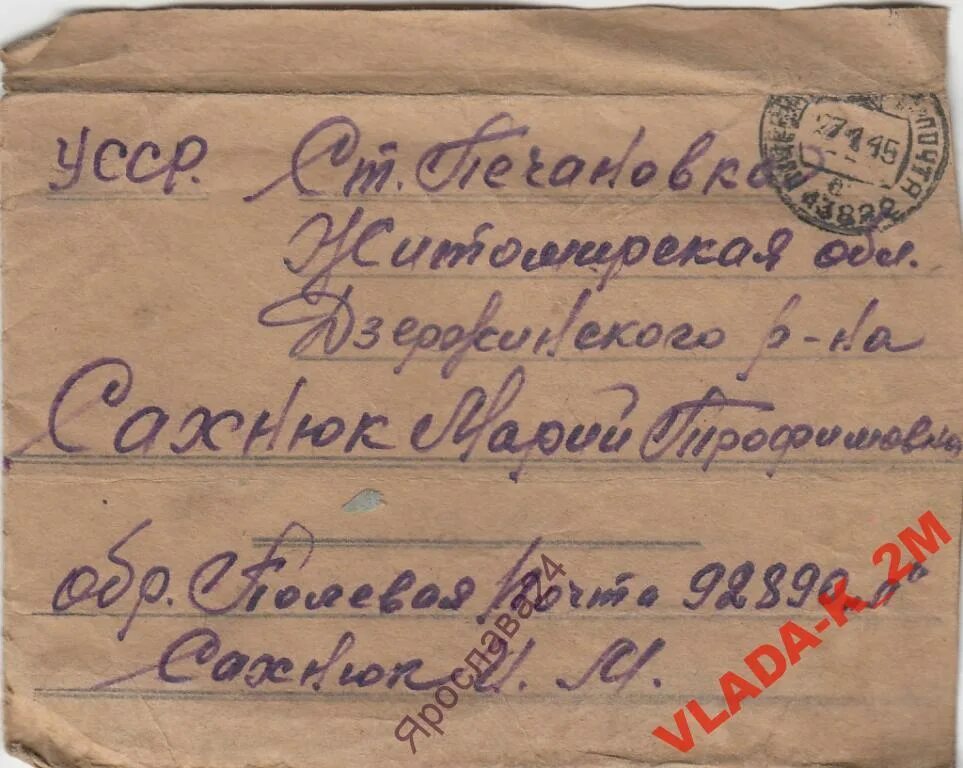 УССР. Ст. Печановка
Житомирская обл.
Дзержинского р-на
Сахнюк Марии Трофимовна
обр. Полевая почта 92890
Сахнюк И. М.
ПОЧТА
43822
Ярослава24
VLADA-K_2M